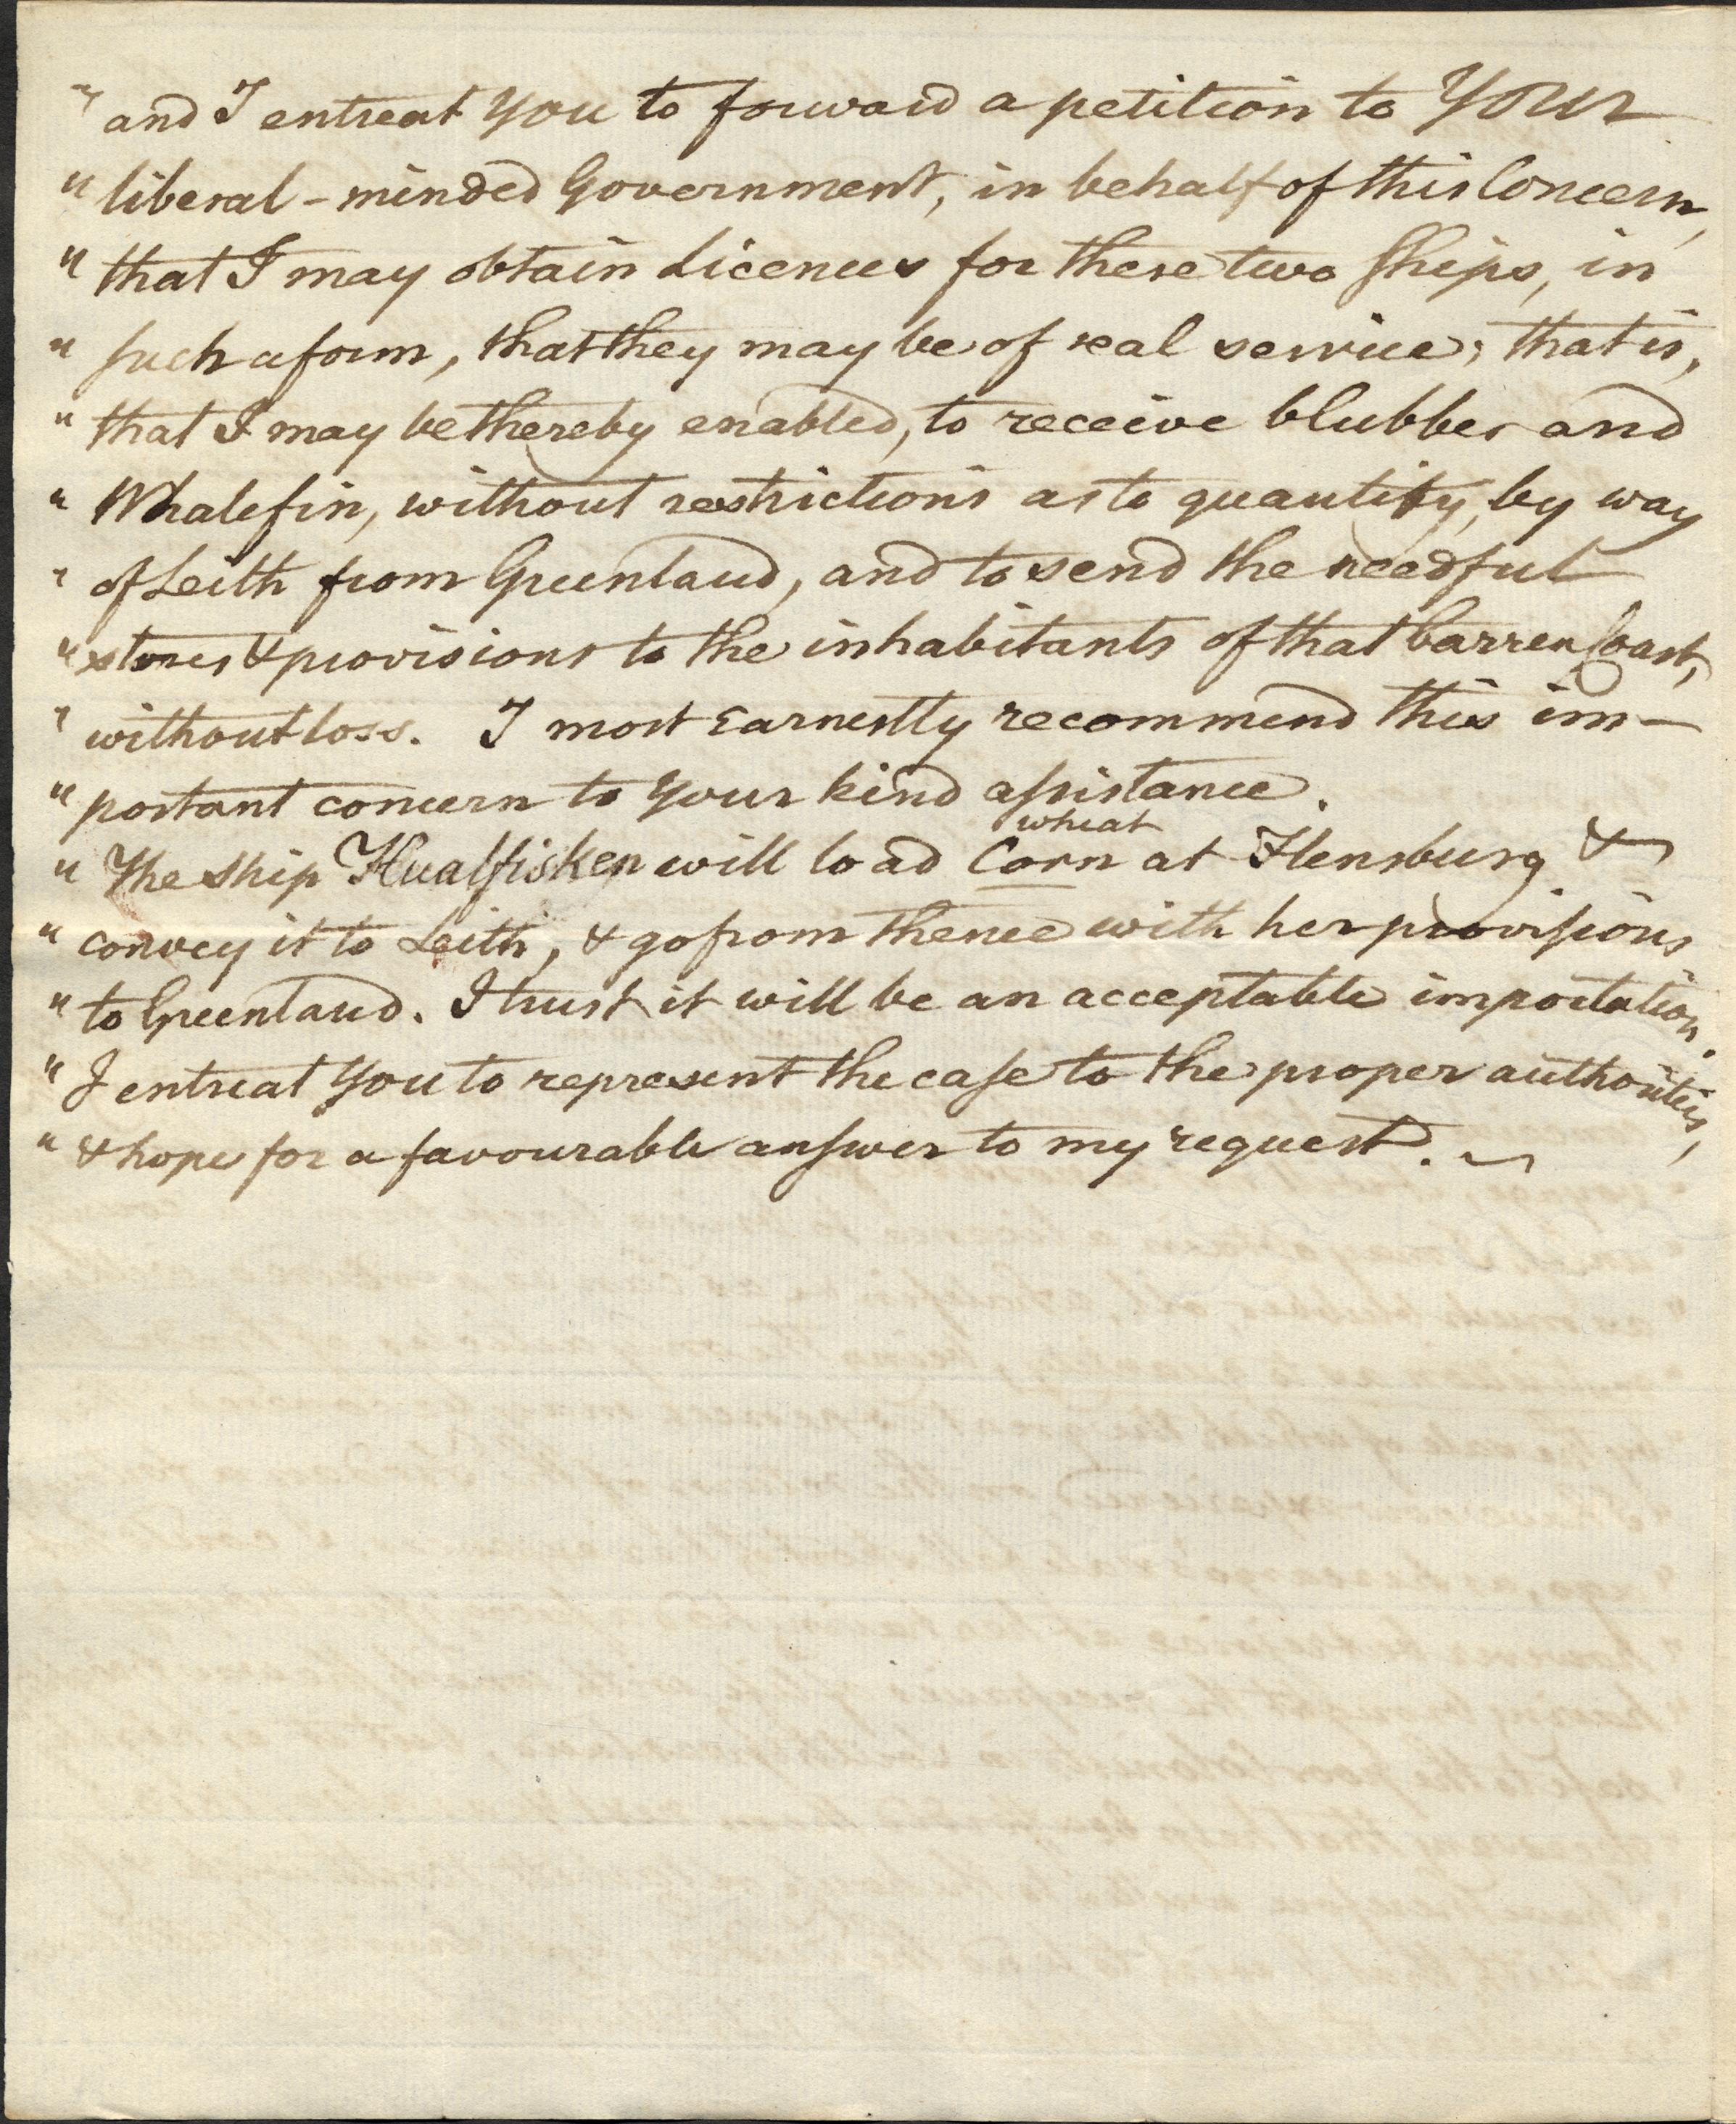 " and I entreat You to forward a petition to Your
" liberal-minded Government, in behalf of this Concern,
" that I may obtain Licences for these two Ships, in
" such a form, that they may be of real service; that is,
" that I may be thereby enabled, to receive blubber and
" Whalefin, without restrictions as to quantity, by way
" of Leith from Greenland, and to send the needful
" stores & provisions to the inhabitants of that barren Coast,
" without loss. I most earnestly recommend this im-
" portant concern to Your kind assistance.
wheat
" The Ship Hualfisken will load Corn at Flensburg &
" convey it to Leith, & go from thence with her provisions
" to Greenland. I trust it will be an acceptable importation.
" I entreat You to represent the case to the proper authorities,
" & hope for a favourable answer to my request.